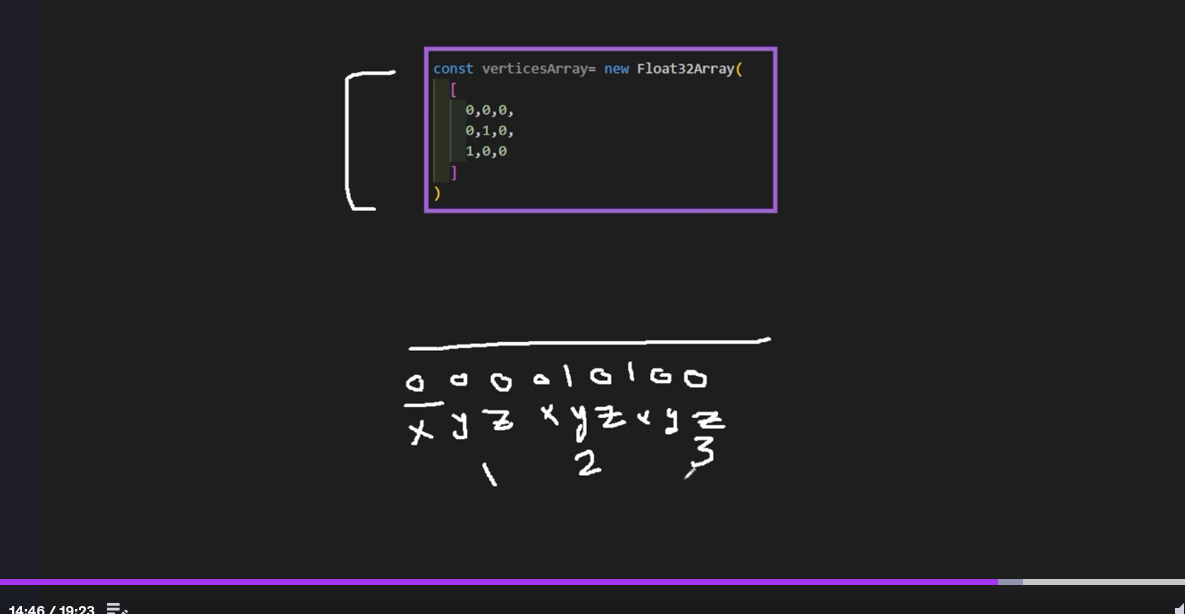 const verticesArray= new Float32Array(
[
0,0,0,
0,1,0,
1,0,0
]
)
0 0 0 0 1 0 1 0 0
x y z x y z x y z
1 2 3
14:46 / 19:23